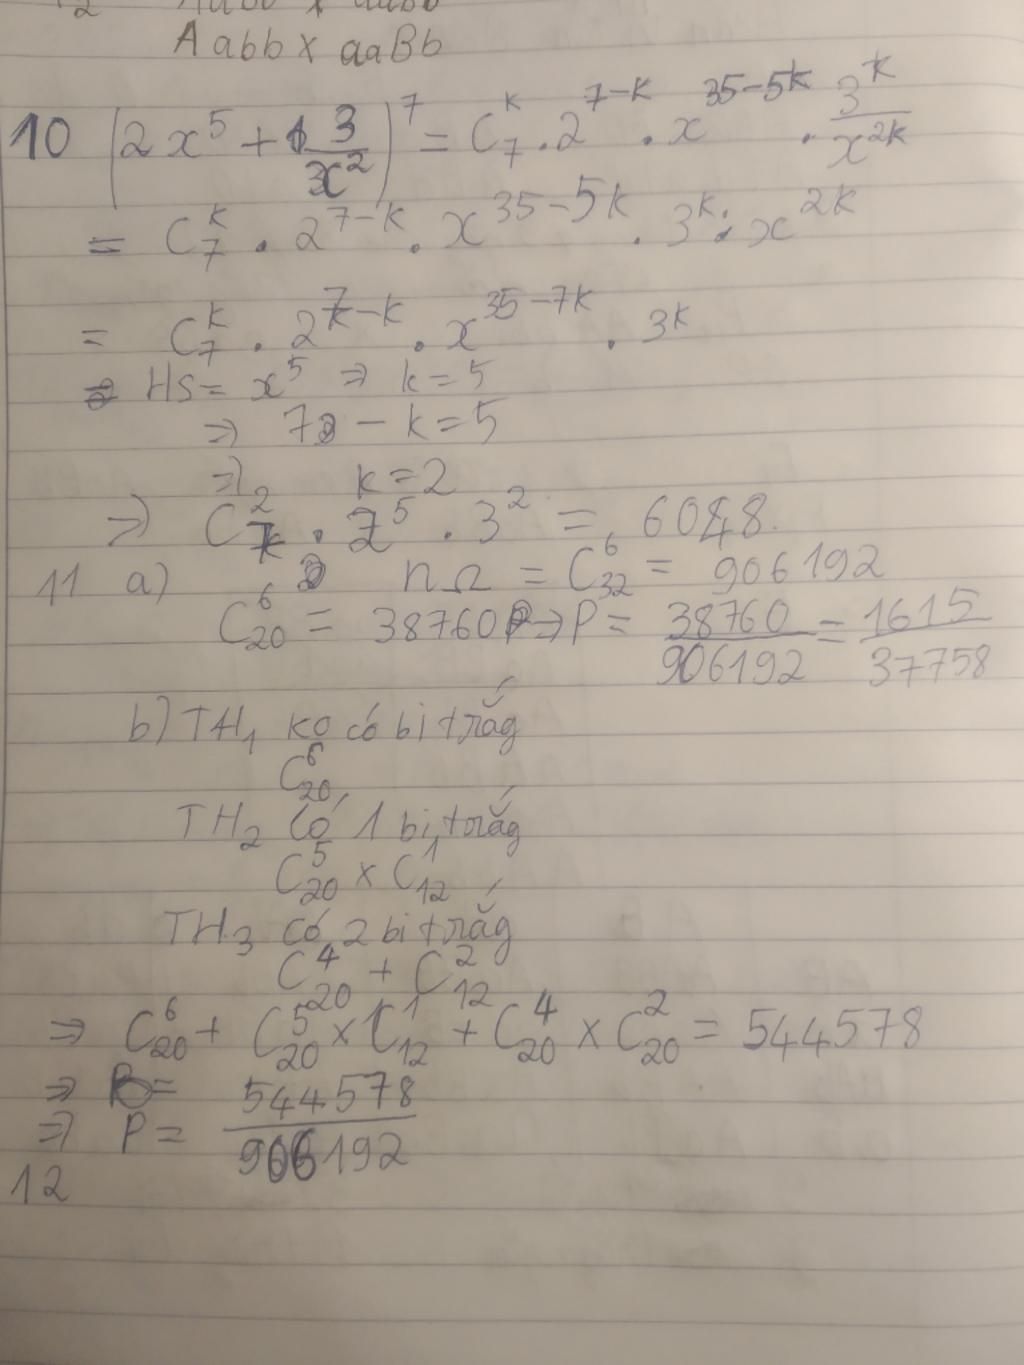 Aabb x aaBb
10 (2x⁵ + 3/x²)⁷ = C₇ᵏ . 2⁷⁻ᵏ . x³⁵⁻⁵ᵏ . 3ᵏ/x²ᵏ
= C₇ᵏ . 2⁷⁻ᵏ . x³⁵⁻⁵ᵏ . 3ᵏ : x²ᵏ
= C₇ᵏ . 2⁷⁻ᵏ . x³⁵⁻⁷ᵏ . 3ᵏ
⇒ HS = x⁵ ⇒ k = 5
⇒ 7 - k = 5
⇒ k = 2
⇒ C₇² . 2⁵ . 3² = 6048.
11 a) nΩ = C₃₂⁶ = 906192
C₂₀⁶ = 38760 ⇒ P = 38760/906192 = 1615/37758
b) TH₁ ko có bi trắg
C₂₀⁶
TH₂ Có 1 bi trắg
C₂₀⁵ x C₁₂¹
TH₃ có 2 bi trắg
C₂₀⁴ + C₁₂²
⇒ C₂₀⁶ + C₂₀⁵ x C₁₂¹ + C₂₀⁴ x C₂₀² = 544578
⇒ P = 544578/906192
12